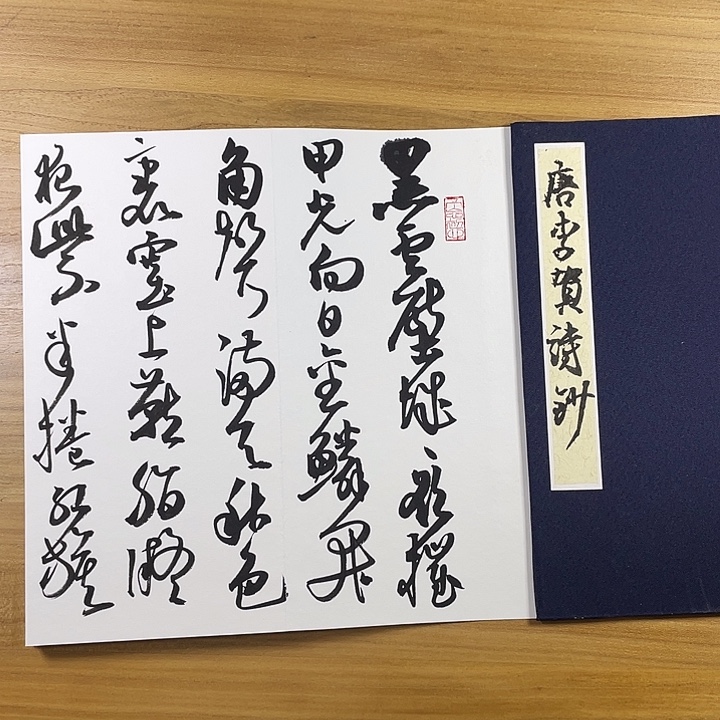 唐李賀詩鈔
黑雲壓城〻欲摧
甲光向日金鱗開
角聲滿天秋色
裏塞上燕脂凝
夜紫半捲紅旗